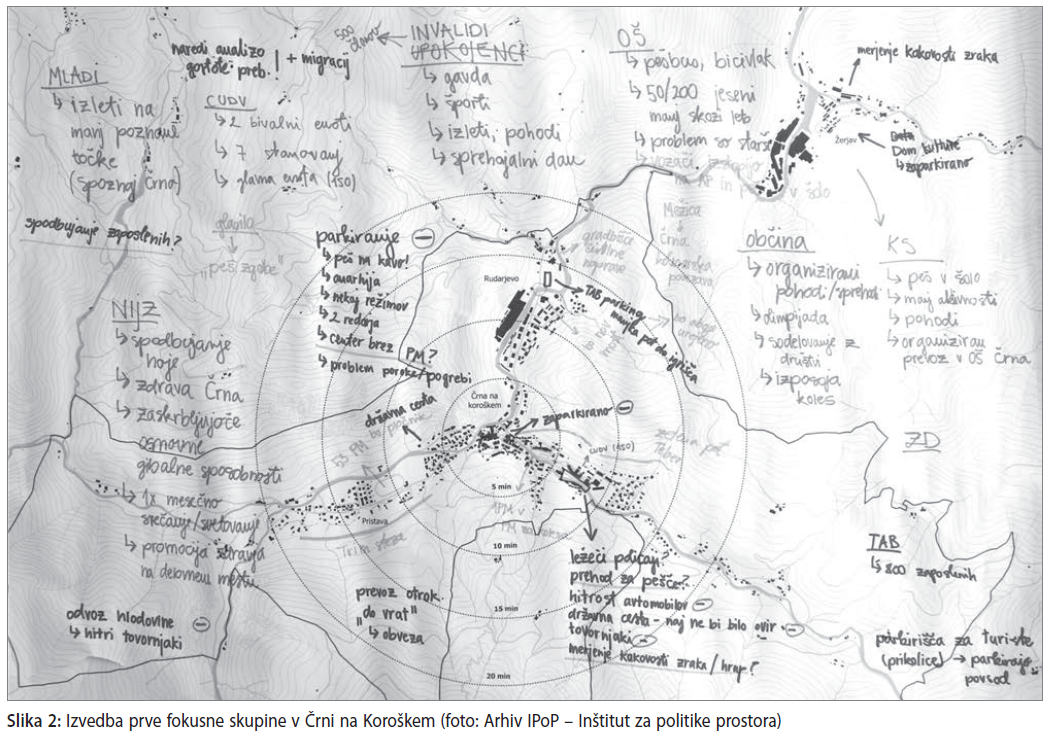 MLADI
↳ izleti na
manj poznane
točke
(spoznaj Črno)
spodbujanje zaposlenih?
naredi analizo
gostote preb. ! + migracij
CUDV
↳ 2 bivalni enoti
↳ 7 stanovanj
↳ glavna enota (150)
glasilo
"peš zgobe"
500 članov
INVALIDI
UPOKOJENCI
↳ gavda
↳ športi
↳ izleti, pohodi
↳ sprehajalni dan
OŠ
↳ pešbus, bicivlak
↳ 50/200 jeseni
manj skozi leto
↳ problem so starši
↳ vozači izstopijo
na AP in v šolo
merjenje kakovosti zraka
Žerjav
Dom kulture
↳ zaparkirano
NIJZ
↳ spodbujanje
hoje
↳ zdrava Črna
↳ zaskrbljujoče
osnovne
gibalne sposobnosti
↳ 1x mesečno
srečanje/svetovanje
↳ promocija zdravja
na delovnem mestu
parkiranje
↳ peš na kavo!
↳ anarhija
↳ nekaj režimov
↳ 2 redarja
↳ center brez PM?
↳ problem poroke/pogrebi
Rudarjevo
TAB parking
manjka pot do igrišča
gradbišče
Mežica
Črna
kolesarska
povezava
občina
↳ organizirani
pohodi/sprehodi
↳ olimpijada
↳ sodelovanje z
društvi
↳ izposoja
koles
KS
↳ peš v šolo
↳ manj aktivnosti
↳ pohodi
↳ organiziran
prevoz v OŠ Črna
ZD
Črna na
koroškem
državna cesta
brez pločnika
53 PM
zaparkirano
CUDV (150)
Pristava
Trim steza
5 min
10 min
15 min
20 min
odvoz hlodovine
↳ hitri tovornjaki
prevoz otrok
"do vrat"
↳ obveza
ležeči policaji?
prehod za pešce?
hitrost avtomobilov
državna cesta - naj ne bi bilo ovir
tovornjaki
merjenje kakovosti zraka / hrup?
TAB
↳ 800 zaposlenih
parkirišča za turiste
(prikolice) → parkirajo
povsod
Slika 2: Izvedba prve fokusne skupine v Črni na Koroškem (foto: Arhiv IPoP – Inštitut za politike prostora)